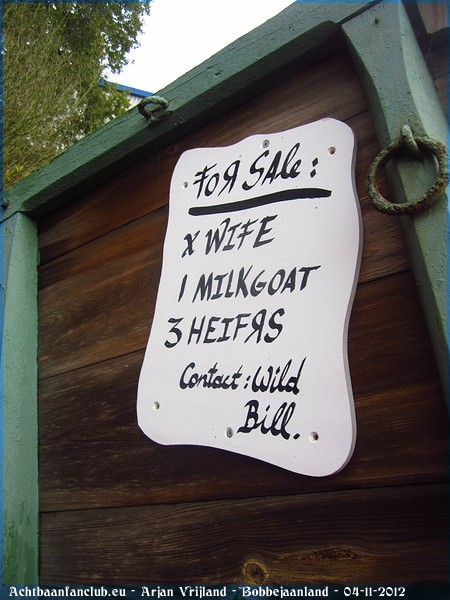 FOЯ SALE:
X WIFE
1 MILKGOAT
3 HEIFЯS
Contact: Wild
Bill.
Achtbaanfanclub.eu - Arjan Vrijland - Bobbejaanland - 04-11-2012